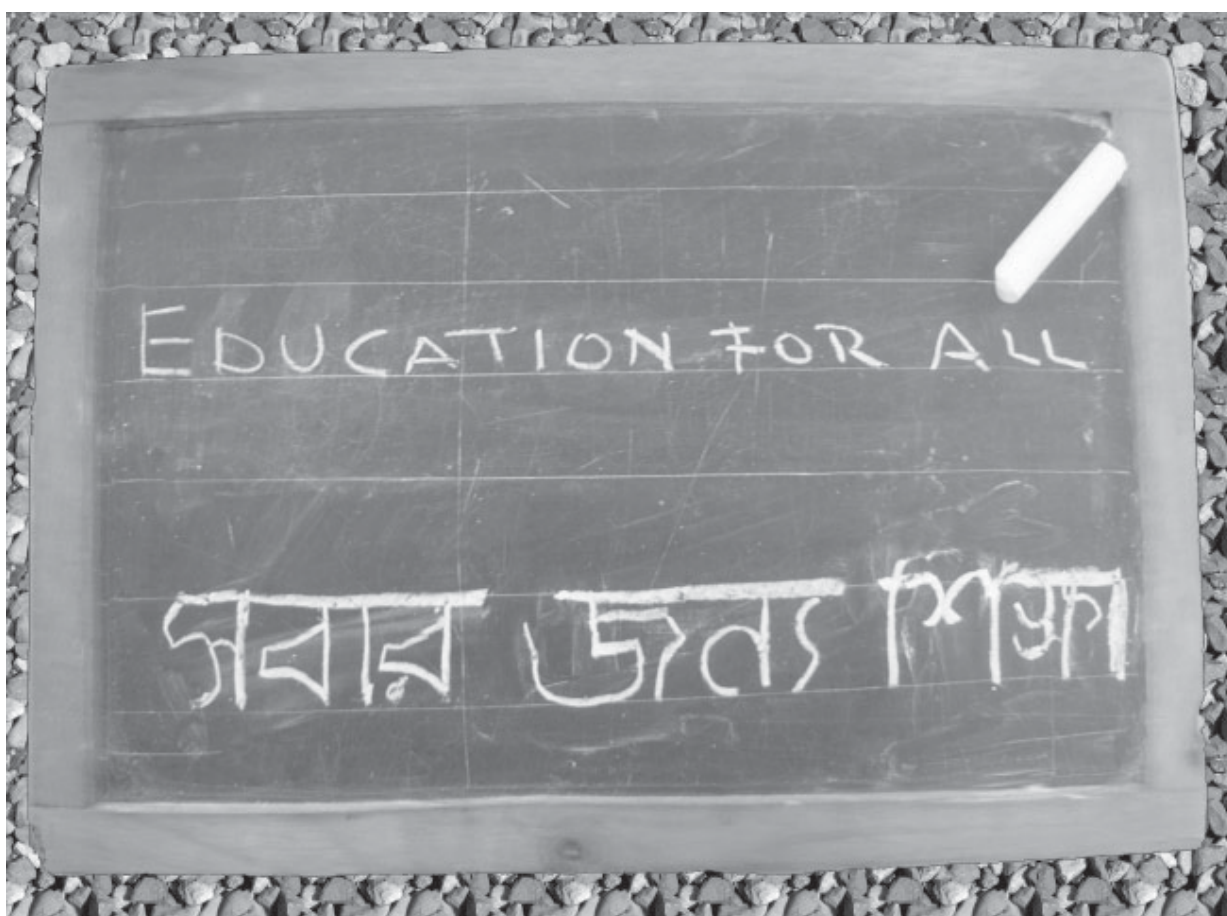 EDUCATION FOR ALL
সবার জন্য শিক্ষা